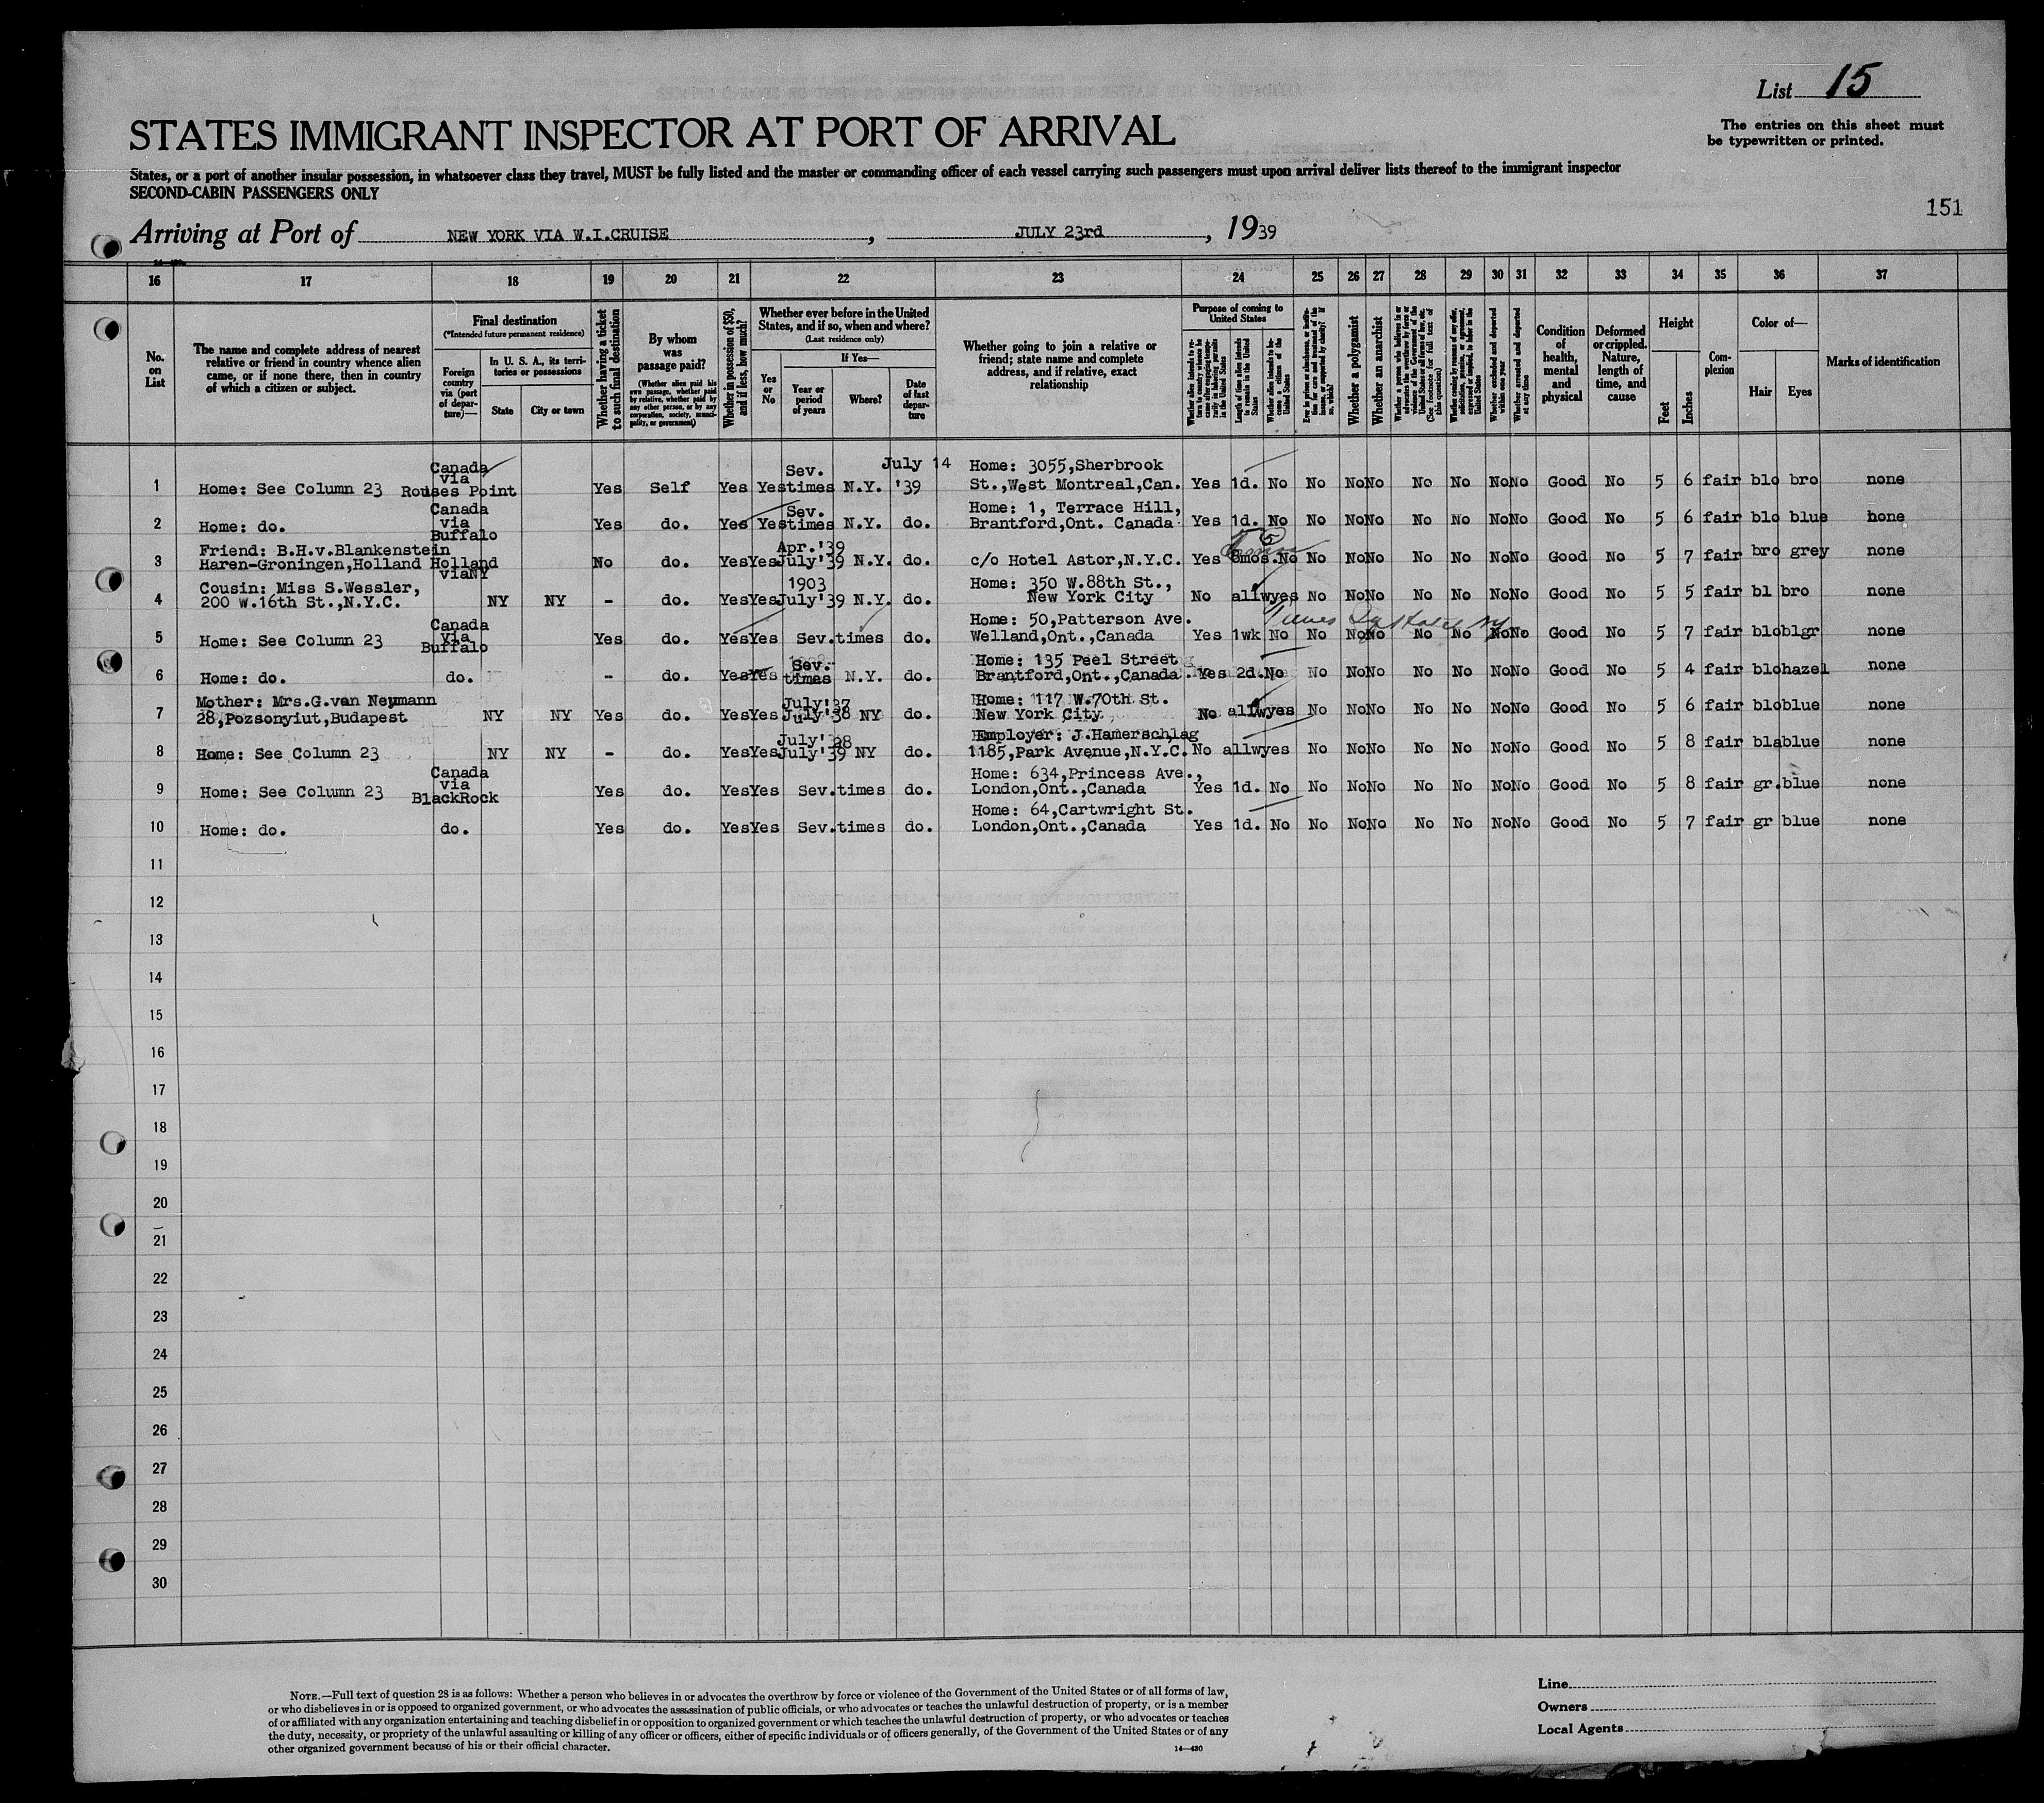 List 15
The entries on this sheet must
be typewritten or printed.
STATES IMMIGRANT INSPECTOR AT PORT OF ARRIVAL
States, or a port of another insular possession, in whatsoever class they travel, MUST be fully listed and the master or commanding officer of each vessel carrying such passengers must upon arrival deliver lists thereof to the immigrant inspector
SECOND-CABIN PASSENGERS ONLY
151
Arriving at Port of NEW YORK VIA W.I.CRUISE, JULY 23rd, 1939
16 17 18 19 20 21 22 23 24 25 26 27 28 29 30 31 32 33 34 35 36 37
No. on List
The name and complete address of nearest relative or friend in country whence alien came, or if none there, then in country of which a citizen or subject.
Final destination
(*Intended future permanent residence)
Foreign country via (port of departure)—
In U. S. A., its territories or possessions
State
City or town
Whether having a ticket to such final destination
By whom was passage paid?
(Whether alien paid his own passage, whether paid by relative, whether paid by any other person, or by any corporation, society, municipality, or government)
Whether in possession of $50, and if less, how much?
Whether ever before in the United States, and if so, when and where?
(Last residence only)
Yes or No
If Yes—
Year or period of years
Where?
Date of last departure
Whether going to join a relative or friend; state name and complete address, and if relative, exact relationship
Purpose of coming to United States
Whether alien intends to return to country whence he came after engaging temporarily in laboring pursuits in the United States
Length of time alien intends to remain in the United States
Whether alien intends to become a citizen of the United States
Ever in prison or almshouse, or institution for care and treatment of the insane, or supported by charity? If so, which?
Whether a polygamist
Whether an anarchist
Whether a person who believes in or advocates the overthrow by force or violence of the Government of the United States or all forms of law, etc. (See footnote for full text of this question)
Whether coming by reason of any offer, solicitation, promise, or agreement, expressed or implied, to labor in the United States
Whether excluded and deported within one year
Whether arrested and deported at any time
Condition of health, mental and physical
Deformed or crippled. Nature, length of time, and cause
Height
Feet
Inches
Complexion
Color of—
Hair
Eyes
Marks of identification
1 Home: See Column 23 Canada via Rouses Point Yes Self Yes Yes Sev. times N.Y. July 14 '39 Home: 3055,Sherbrook St.,West Montreal,Can. Yes 1d. No No No No No No No No Good No 5 6 fair blo bro none
2 Home: do. Canada via Buffalo Yes do. Yes Yes Sev. times N.Y. do. Home: 1, Terrace Hill, Brantford,Ont. Canada Yes 1d. No No No No No No No No Good No 5 6 fair blo blue none
3 Friend: B.H.v.Blankenstein Haren-Groningen,Holland Holland viaNY No do. Yes Yes Apr.'39 July'39 N.Y. do. c/o Hotel Astor,N.Y.C. Yes 6mos. No No No No No No No No Good No 5 7 fair bro grey none
4 Cousin: Miss S.Wessler, 200 W.16th St.,N.Y.C. NY NY - do. Yes Yes 1903 July'39 N.Y. do. Home: 350 W.88th St., New York City No allw yes No No No No No No No Good No 5 5 fair bl bro none
5 Home: See Column 23 Canada via Buffalo Yes do. Yes Yes Sev.times do. Home: 50,Patterson Ave. Welland,Ont.,Canada Yes 1wk No No No No No No No No Good No 5 7 fair blo blgr none
6 Home: do. do. - do. Yes Yes Sev. times N.Y. do. Home: 135 Peel Street Brantford,Ont.,Canada. Yes 2d. No No No No No No No No Good No 5 4 fair blo hazel none
7 Mother: Mrs.G.van Neymann 28,Pozsonyiut,Budapest NY NY Yes do. Yes Yes July'37 July'38 NY do. Home: 117 W.70th St. New York City No allw yes No No No No No No No Good No 5 6 fair blo blue none
8 Home: See Column 23 NY NY - do. Yes Yes July'28 July'39 NY do. Employer: J.Hamerschlag 1185,Park Avenue,N.Y.C. No allw yes No No No No No No No Good No 5 8 fair bla blue none
9 Home: See Column 23 Canada via BlackRock Yes do. Yes Yes Sev.times do. Home: 634,Princess Ave., London,Ont.,Canada Yes 1d. No No No No No No No No Good No 5 8 fair gr. blue none
10 Home: do. do. Yes do. Yes Yes Sev.times do. Home: 64,Cartwright St. London,Ont.,Canada Yes 1d. No No No No No No No No Good No 5 7 fair gr blue none
11
12
13
14
15
16
17
18
19
20
21
22
23
24
25
26
27
28
29
30
NOTE.—Full text of question 28 is as follows: Whether a person who believes in or advocates the overthrow by force or violence of the Government of the United States or of all forms of law,
or who disbelieves in or is opposed to organized government, or who advocates the assassination of public officials, or who advocates or teaches the unlawful destruction of property, or is a member
of or affiliated with any organization entertaining and teaching disbelief in or opposition to organized government or which teaches the unlawful destruction of property, or who advocates or teaches
the duty, necessity, or propriety of the unlawful assaulting or killing of any officer or officers, either of specific individuals or of officers generally, of the Government of the United States or of any
other organized government because of his or their official character.
14—430
Line
Owners
Local Agents